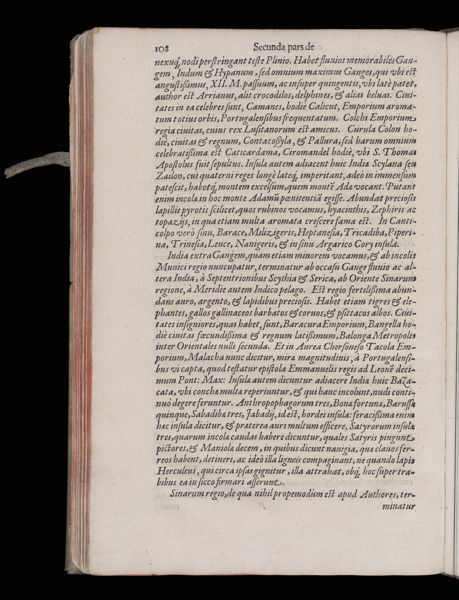 108 Secunda pars de
nexuq́, nodi perstringant teste Plinio. Habet fluuios memorabiles Gan-
gem, Indum & Hypanum, sed omnium maximus Ganges, qui vbi est
angustissimus, XII. M. passuum, ac insuper quingentis, vbi latè patet,
author est Arrianus, alit crocodilos, delphines, & alias beluas. Ciui-
tates in ea celebres sunt, Camanes, hodiè Calicut, Emporium aroma-
tum totius orbis, Portugalensibus frequentatum. Colchi Emporium,
regia ciuitas, cuius rex Lusitanorum est amicus. Curula Colon ho-
die, ciuitas & regnum, Contacossyla, & Pallura, sed harum omnium
celebratissima est Caiscardama, Ciromandel hodiè, vbi S. Thomas
Apostolus fuit sepultus. Insula autem adiacent huic India Scylana seu
Zailon, cui quaterni reges longè lateq́, imperitant, adeò in immensum
patescit, habetq́, montem excelsum, quem montẽ Ada vocant. Putant
enim incola in hoc monte Adamũ pœnitentiã egisse. Abundat preciosis
lapillis pyrotis scilicet, quos rubinos vocamus, hyacinthis, Zephiris ac
topazijs, in qua etiam multa aromata crescere fama est. In Canti-
colpo verò sinu, Barace, Milizigeris, Heptanesia, Tricadiba, Piperi-
na, Trinesia, Leuce, Nanigeris, & in sinu Argarico Cory insula.
India extra Gangem, quam etiam minorem vocamus, & ab incolis
Munici regio nuncupatur, terminatur ab occasu Gange fluuio ac al-
tera India, à Septentrionibus Scythia & Serica, ab Oriente Sinarum
regione, à Meridie autem Indico pelago. Est regio fertilissima abun-
dans auro, argento, & lapidibus preciosis. Habet etiam tigres & ele-
phantes, gallos gallinaceos barbatos & coruos, & psittacos albos. Ciui-
tates insigniores, quas habet, sunt, Baracura Emporium, Bangella ho-
diè ciuitas fœcundissima & regnum latissimum, Balonga Metropolis
inter Orientales nulli secunda. Et in Aurea Chersoneso Tacola Em-
porium, Malacha nunc dicitur, mira magnitudinis, à Portugalensi-
bus vi capta, quod testatur epistola Emmanuelis regis ad Leonẽ deci-
mum Pont: Max: Insula autem dicuntur adiacere India huic Baza-
cata, vbi concha multa reperiuntur, & qui hanc incolunt, nudi conti-
nuò degere feruntur. Anthropophagorum tres, Bona fortuna, Barussa
quinque, Sabadiba tres, Jabadij, id est, hordei insula: feracissima enim
hac insula dicitur, & praterea auri multum efficere, Satyrorum insula
tres, quarum incola caudas habere dicuntur, quales Satyris pingunt
pictores, & Maniola decem, in quibus dicunt nauigia, qua clauos fer-
reos habent, detineri, ac ideò illa ligneis compaginant, ne quando lapis
Herculeus, qui circa ipsas gignitur, illa attrahat, obq́, hoc super tra-
bibus ea in sicco firmari asserunt.
Sinarum regio, de qua nihil propemodum est apud Authores, ter-
minatur